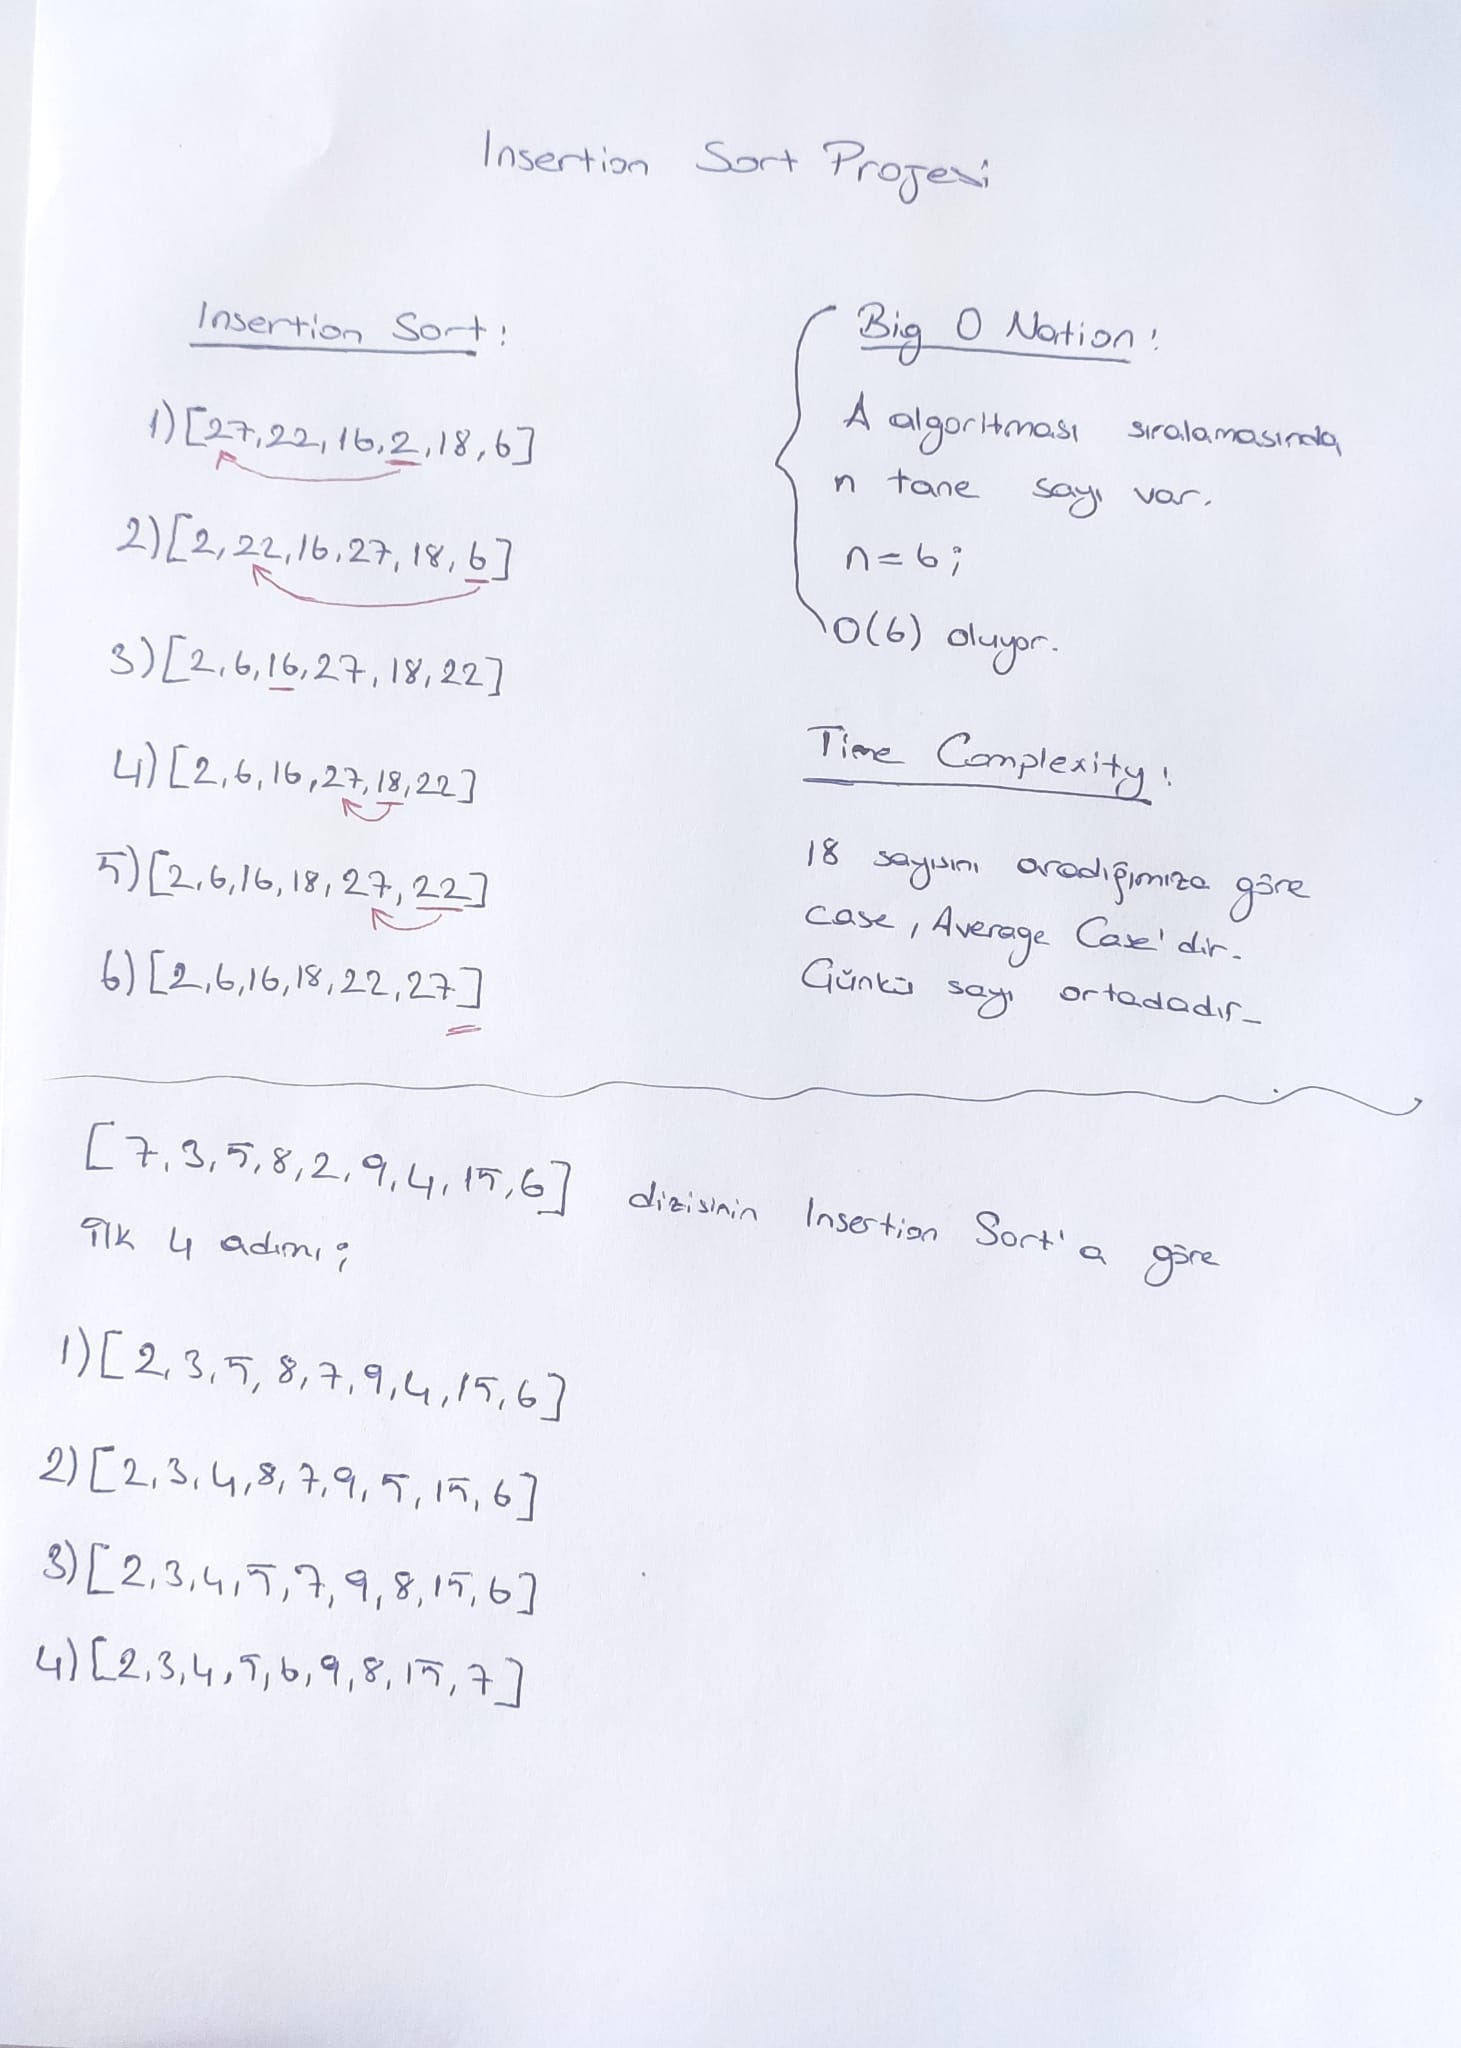 Insertion Sort Projesi
Insertion Sort:
1) [27,22,16,2,18,6]
2) [2,22,16,27,18,6]
3) [2,6,16,27,18,22]
4) [2,6,16,27,18,22]
5) [2,6,16,18,27,22]
6) [2,6,16,18,22,27]
Big O Notion:
A algoritması sıralamasında
n tane sayı var.
n=6;
O(6) oluyor.
Time Complexity:
18 sayısını aradığımıza göre
case, Average Case'dir.
Günkü sayı ortadadır.
[7,3,5,8,2,9,4,15,6] dizisinin Insertion Sort'a göre
ilk 4 adımı;
1) [2,3,5,8,7,9,4,15,6]
2) [2,3,4,8,7,9,5,15,6]
3) [2,3,4,5,7,9,8,15,6]
4) [2,3,4,5,6,9,8,15,7]